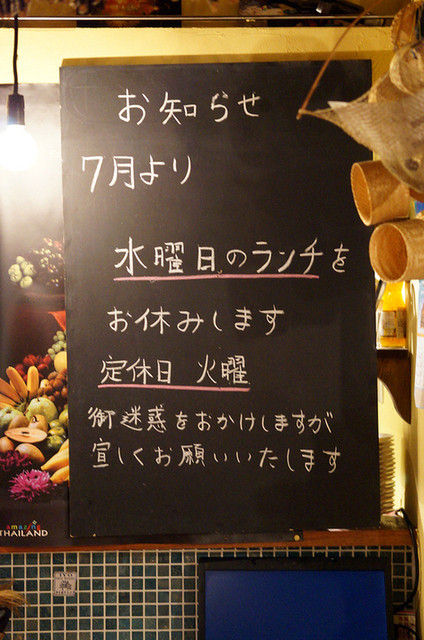 お知らせ
7月より
水曜日のランチを
お休みします
定休日 火曜
御迷惑をおかけしますが
宜しくお願いいたします
amazing
THAILAND